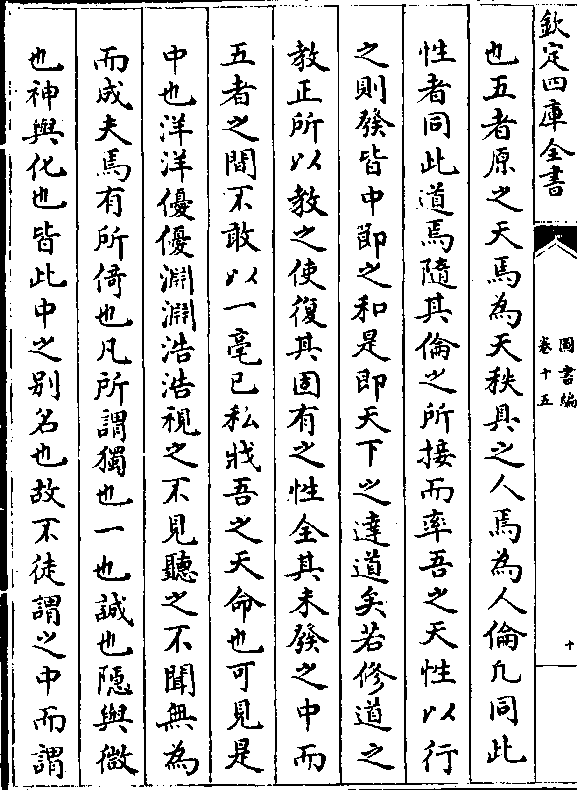 欽定四庫全書
圖書編
卷十五
十
也五者原之天焉為天秩具之人焉為人倫凡同此
性者同此道焉隨其倫之所接而率吾之天性以行
之則發皆中即之和是即天下之達道矣若修道之
教正所以教之使復其固有之性全其未發之中而
五者之間不敢以一毫已私戕吾之天命也可見是
中也洋洋優優淵淵浩浩視之不見聽之不聞無為
而成夫焉有所倚也凡所謂獨也一也誠也隱與微
也神與化也皆此中之别名也故不徒謂之中而謂